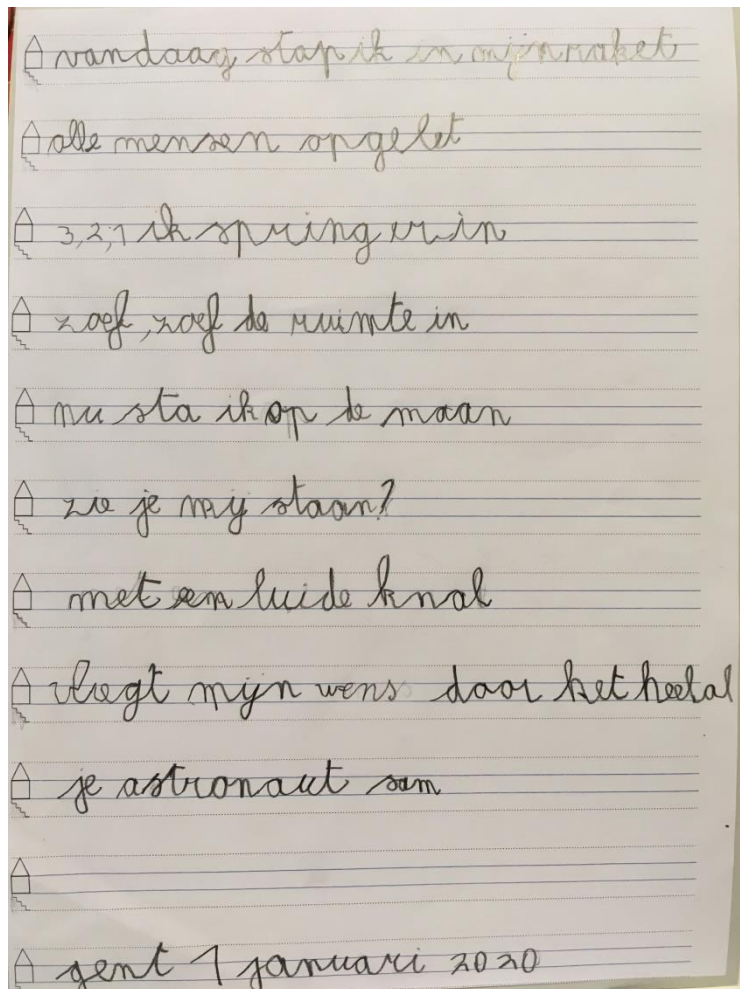 vandaag stap ik in mijn raket
alle mensen opgelet
3,2,1 ik spring er in
zoef, zoef de ruimte in
nu sta ik op de maan
zie je mij staan?
met een luide knal
vliegt mijn wens door het heelal
je astronaut sam
gent 1 januari 2020